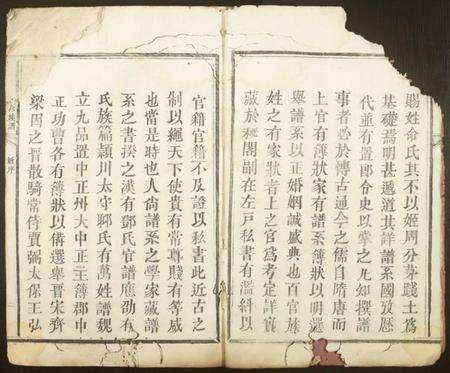 賜姓俞氏其不以姬周分茅踐土爲
基礎焉明甚遐道其詳譜系國攷歷
代並有置郎令史以掌之凡知撰譜
事者必於博古通今之儒自隋唐而
上官有簿狀家有譜系簿狀以明選
舉譜系以正婚姻誠盛典也百官族
姓之有家狀者上之官爲考定詳實
藏於秘閣副在左戸私書有濫糾以
官籍官籍不及證以私書此近古之
制以繩天下使貴有常尊賤有等威
也當是時也人尚譜系之學家藏譜
系之書揆之漢有鄧氏官譜應劭有
氏族篇潁川太守聊氏有萬姓譜魏
立九品置中正州大中正主簿郡中
正功曹各有簿狀以俻選舉晉宋齊
梁因之晉散騎常侍賈弼太保王弘
族譜
新序